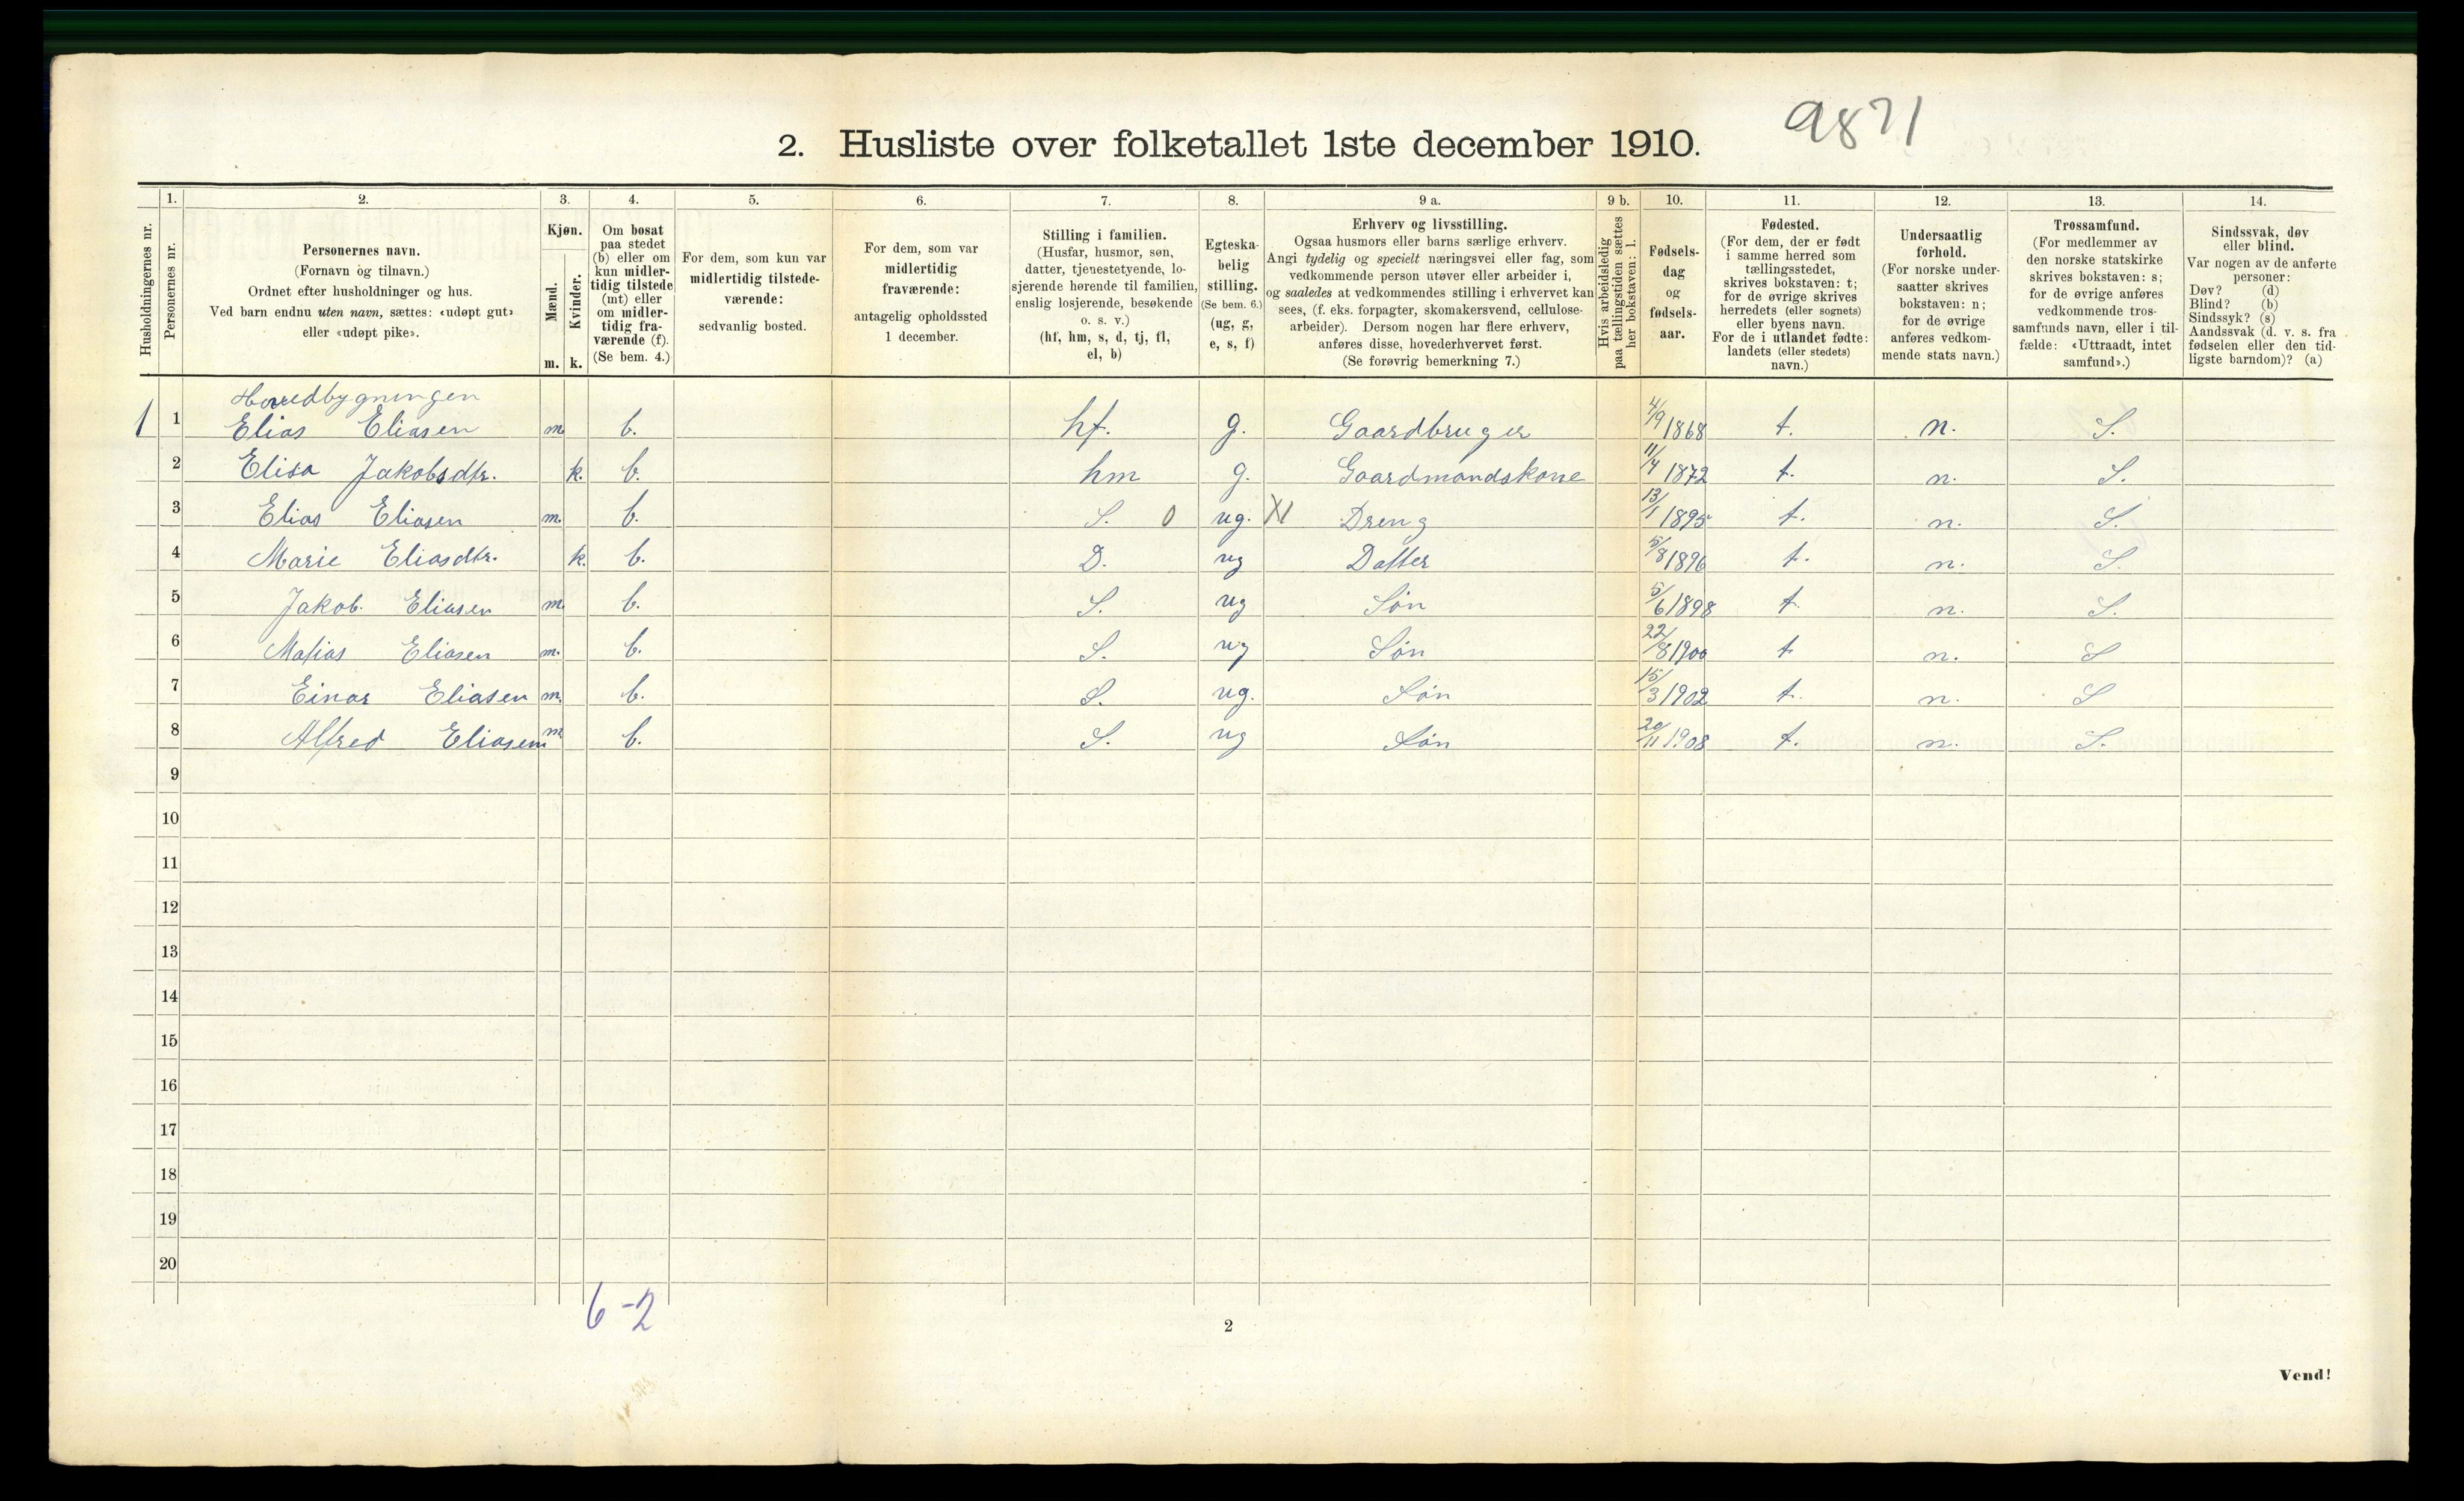 9871
2. Husliste over folketallet 1ste december 1910.
Husholdningernes nr.
1. Personernes nr.
2. Personernes navn.
(Fornavn og tilnavn.)
Ordnet efter husholdninger og hus.
Ved barn endnu uten navn, sættes: «udøpt gut»
eller «udøpt pike».
3. Kjøn.
Mænd. m.
Kvinder. k.
4. Om bosat
paa stedet
(b) eller om
kun midler-
tidig tilstede
(mt) eller
om midler-
tidig fra-
værende (f).
(Se bem. 4.)
5. For dem, som kun var
midlertidig tilstede-
værende:
sedvanlig bosted.
6. For dem, som var
midlertidig
fraværende:
antagelig opholdssted
1 december.
7. Stilling i familien.
(Husfar, husmor, søn,
datter, tjenestetyende, lo-
sjerende hørende til familien,
enslig losjerende, besøkende
o. s. v.)
(hf, hm, s, d, tj, fl,
el, b)
8. Egteska-
belig
stilling.
(Se bem. 6.)
(ug, g,
e, s, f)
9 a. Erhverv og livsstilling.
Ogsaa husmors eller barns særlige erhverv.
Angi tydelig og specielt næringsvei eller fag, som
vedkommende person utøver eller arbeider i,
og saaledes at vedkommendes stilling i erhvervet kan
sees, (f. eks. forpagter, skomakersvend, cellulose-
arbeider). Dersom nogen har flere erhverv,
anføres disse, hovederhvervet først.
(Se forøvrig bemerkning 7.)
9 b. Hvis arbeidsledig
paa tællingstiden sættes
her bokstaven: l.
10. Fødsels-
dag
og
fødsels-
aar.
11. Fødested.
(For dem, der er født
i samme herred som
tællingsstedet,
skrives bokstaven: t;
for de øvrige skrives
herredets (eller sognets)
eller byens navn.
For de i utlandet fødte:
landets (eller stedets)
navn.)
12. Undersaatlig
forhold.
(For norske under-
saatter skrives
bokstaven: n;
for de øvrige
anføres vedkom-
mende stats navn.)
13. Trossamfund.
(For medlemmer av
den norske statskirke
skrives bokstaven: s;
for de øvrige anføres
vedkommende tros-
samfunds navn, eller i til-
fælde: «Uttraadt, intet
samfund».)
14. Sindssvak, døv
eller blind.
Var nogen av de anførte
personer:
Døv? (d)
Blind? (b)
Sindssyk? (s)
Aandssvak (d. v. s. fra
fødselen eller den tid-
ligste barndom)? (a)
Hovedbygningen
1 1 Elias Eliasen m b. hf. g. Gaardbruger 4/9 1868 t. n. S.
2 Elisa Jakobsdtr. k. b. hm g. Gaardmandskone 11/4 1872 t. n. S.
3 Elias Eliasen m. b. S. 0 ug. XI Dreng 13/1 1895 t. n. S.
4 Marie Eliasdtr. k. b. D. ug Datter 5/8 1896 t. n. S.
5 Jakob Eliasen m. b. S. ug Søn 5/6 1898 t. n. S.
6 Matias Eliasen m. b. S. ug Søn 22/8 1900 t n. S
7 Einar Eliasen m. b. S. ug. Søn 15/3 1902 t. n. S
8 Alfred Eliasen m b. S. ug Søn 20/11 1908 t. n. S.
9
10
11
12
13
14
15
16
17
18
19
20
6-2
2
Vend!